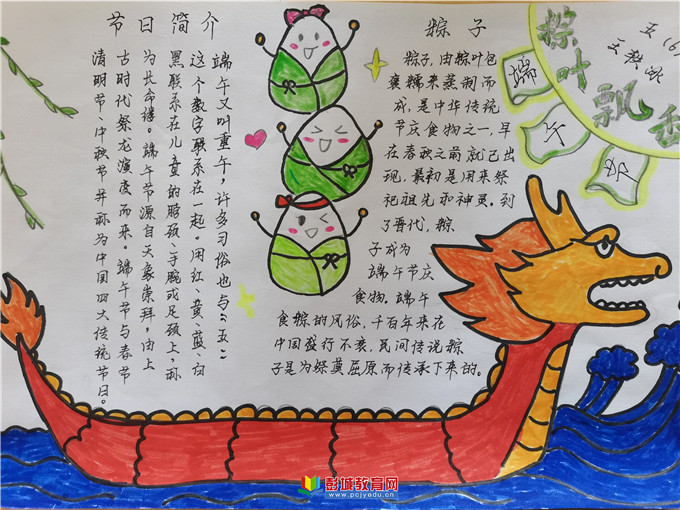 节日简介
端午又叫重午,许多习俗也与“五”
这个数字联系在一起。用红、黄、蓝、白
黑联系在儿童的脖颈、手腕或足颈上,称
为长命缕。端午节源自天象崇拜,由上
古时代祭龙演变而来。端午节与春节
清明节、中秋节并称为中国四大传统节日。
粽子
粽子,由粽叶包
裹糯米蒸制而
成,是中华传统
节庆食物之一,早
在春秋之前就已出
现,最初是用来祭
祀祖先和神灵。到
了晋代,粽
子成为
端午节庆
食物。端午
食粽的风俗,千百年来在
中国盛行不衰,民间传说粽
子是为祭奠屈原而传承下来的。
五(6)
粽叶飘香
端午节
彭城教育网
www.pcjyedu.cn